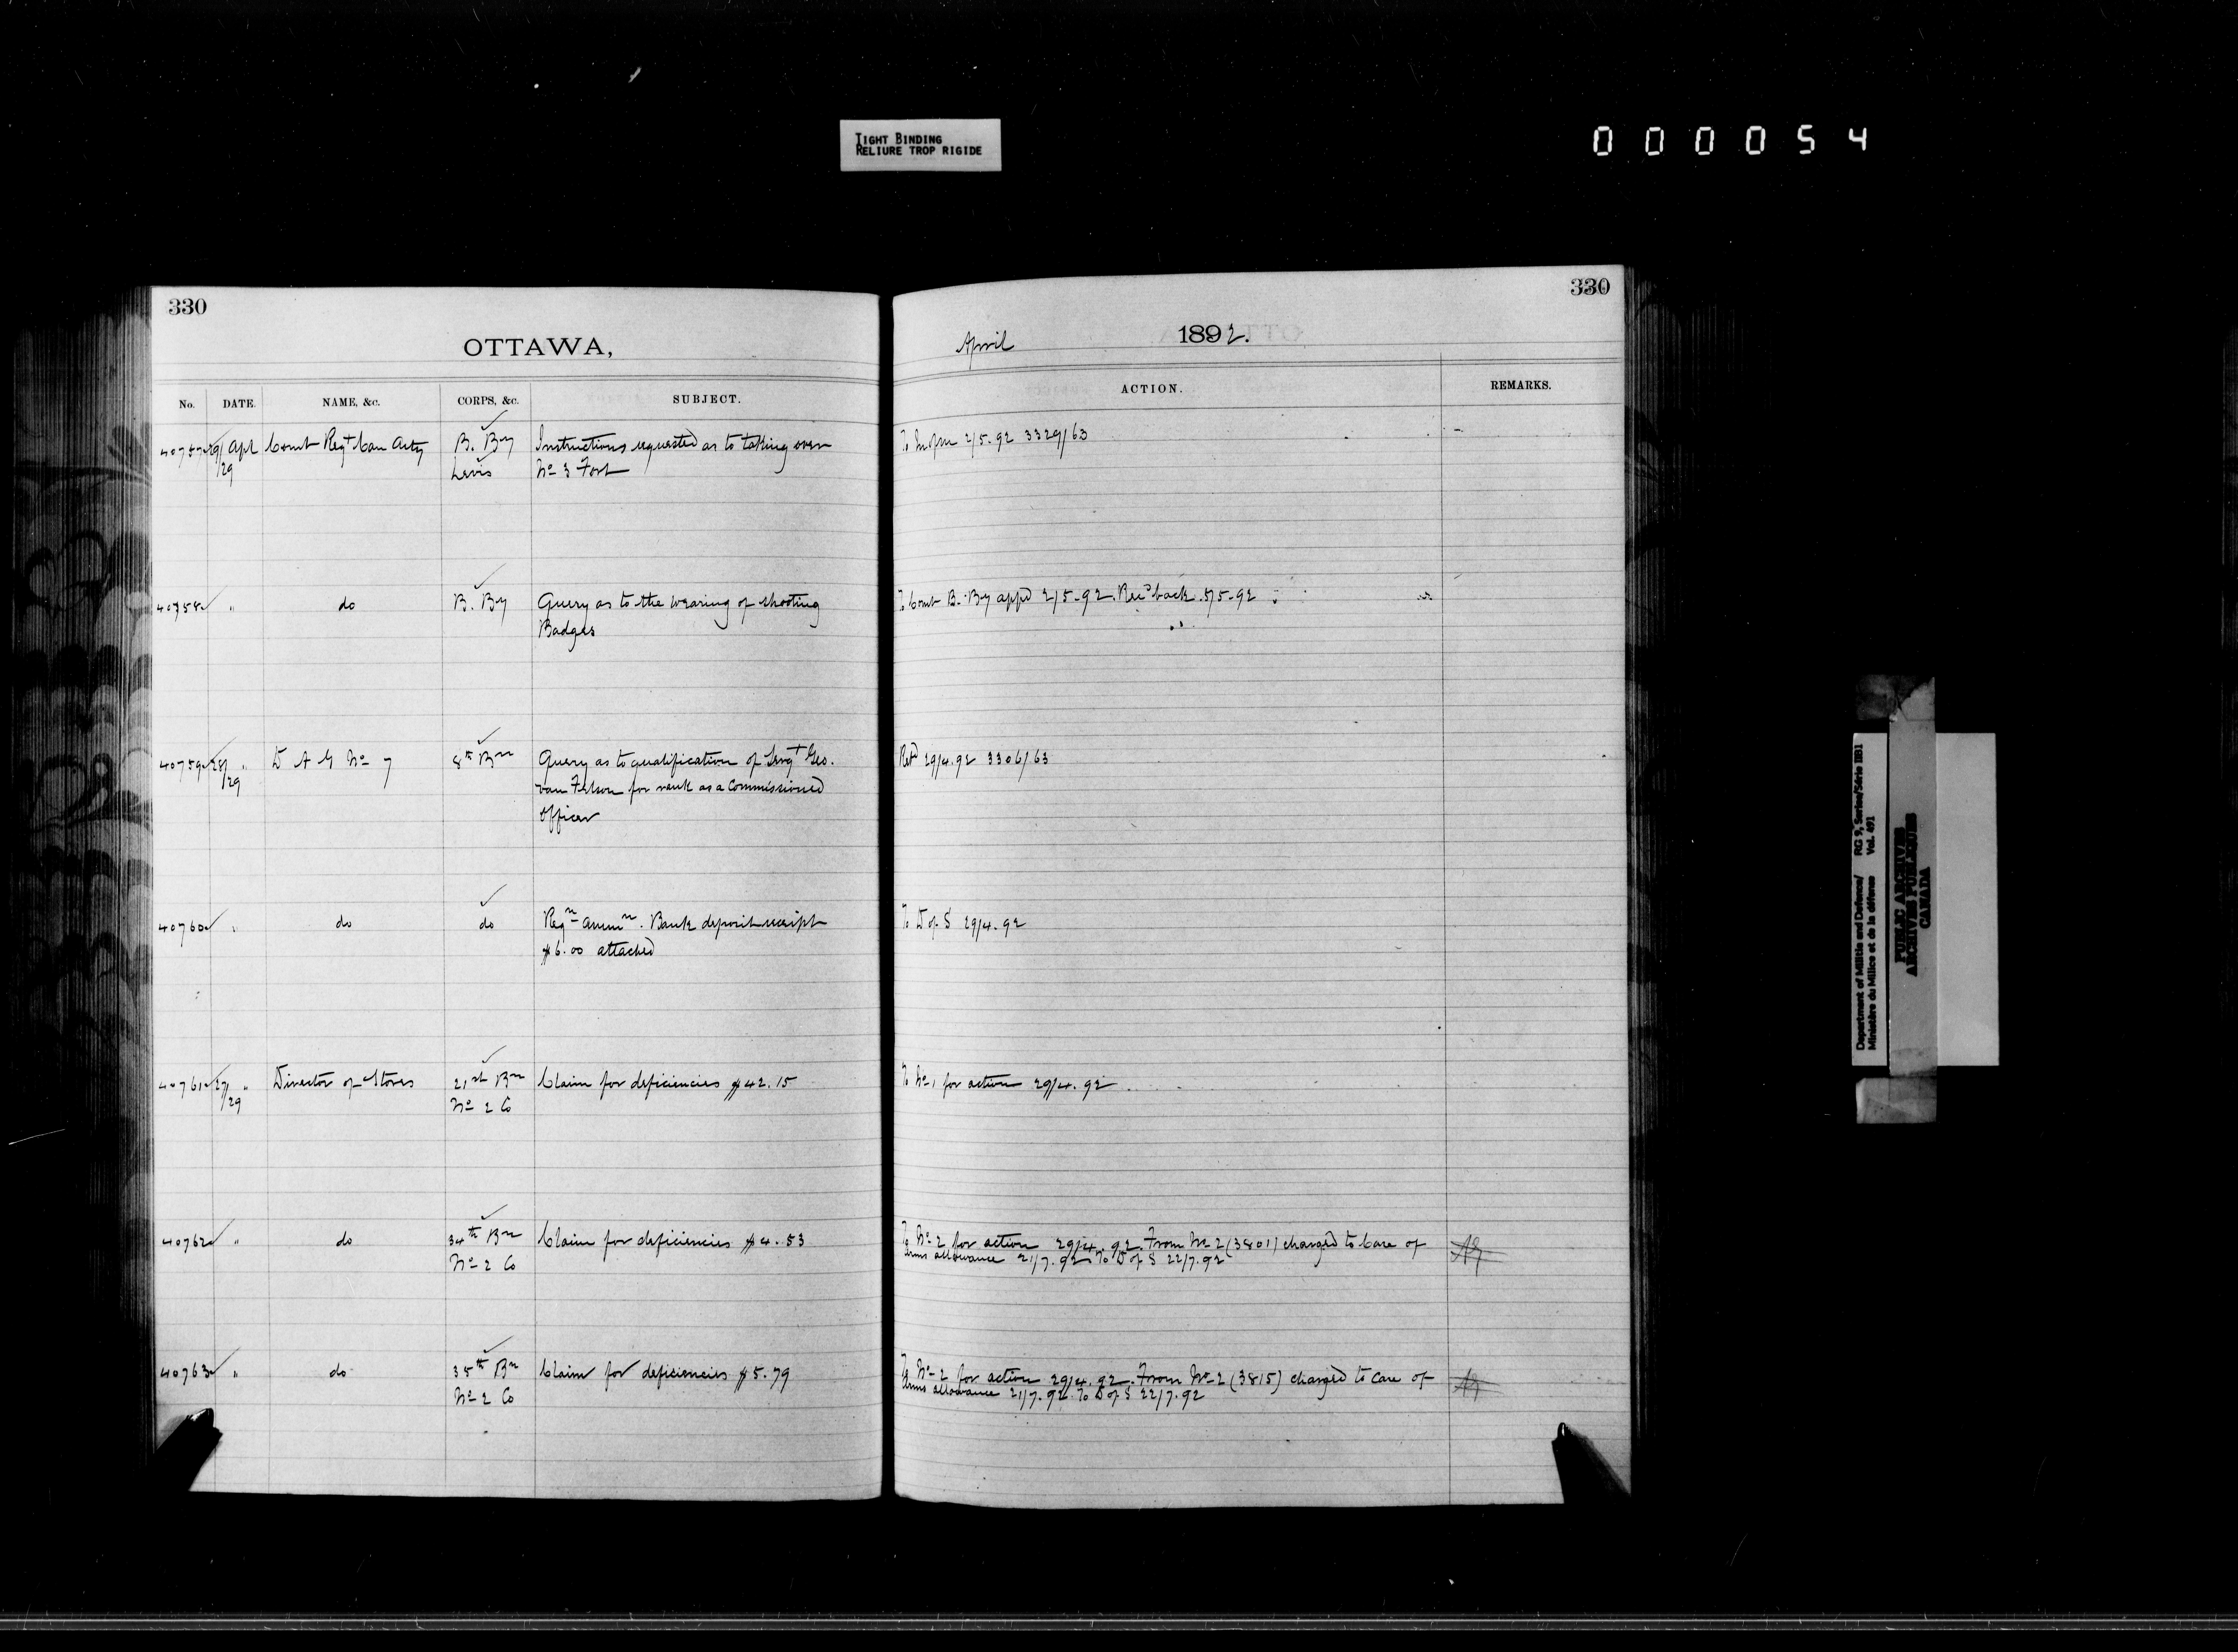 TIGHT BINDING
RELIURE TROP RIGIDE
0 0 0 0 5 4
330
OTTAWA,
No. DATE. NAME, &c. CORPS, &c. SUBJECT.
40757 29/ Apl Comt Regt Can Arty B. By Instructions requested as to taking over
/29 Levis No 3 Fort
40758 " do B. By Query as to the wearing of shooting
Badges
40759 28/ " D A G No 7 8th Bn Query as to qualification of Sergt Geo.
/29 van Felson for rank as a Commissioned
Officer
40760 " do do Reqn Ammn. Bank deposit receipt
$6.00 attached
40761 27/ " Director of Stores 21st Bn Claim for deficiencies $42.15
/29 No 2 Co
40762 " do 34th Bn Claim for deficiencies $4.53
No 2 Co
40763 " do 35th Bn Claim for deficiencies $5.79
No 2 Co
330
April 1892.
ACTION. REMARKS.
To 2/5.92 3329/63
To Comt B. By appd 2/5.92. Recd back 5/5.92
Retd 29/4.92 3306/63
To D of S 29/4.92
To No 1 for action 29/4.92
To No 2 for action 29/4.92. From No 2 (3801) charged to Care of
Arms allowance 21/7.92 To D of S 22/7.92
To No 2 for action 29/4.92. From No 2 (3815) charged to Care of
Arms allowance 21/7.92 To D of S 22/7.92
Department of Militia and Defence/ RG 9, Series/Série IIB1
Ministère du Milice et de la défense Vol. 491
PUBLIC ARCHIVES
ARCHIVES PUBLIQUES
CANADA